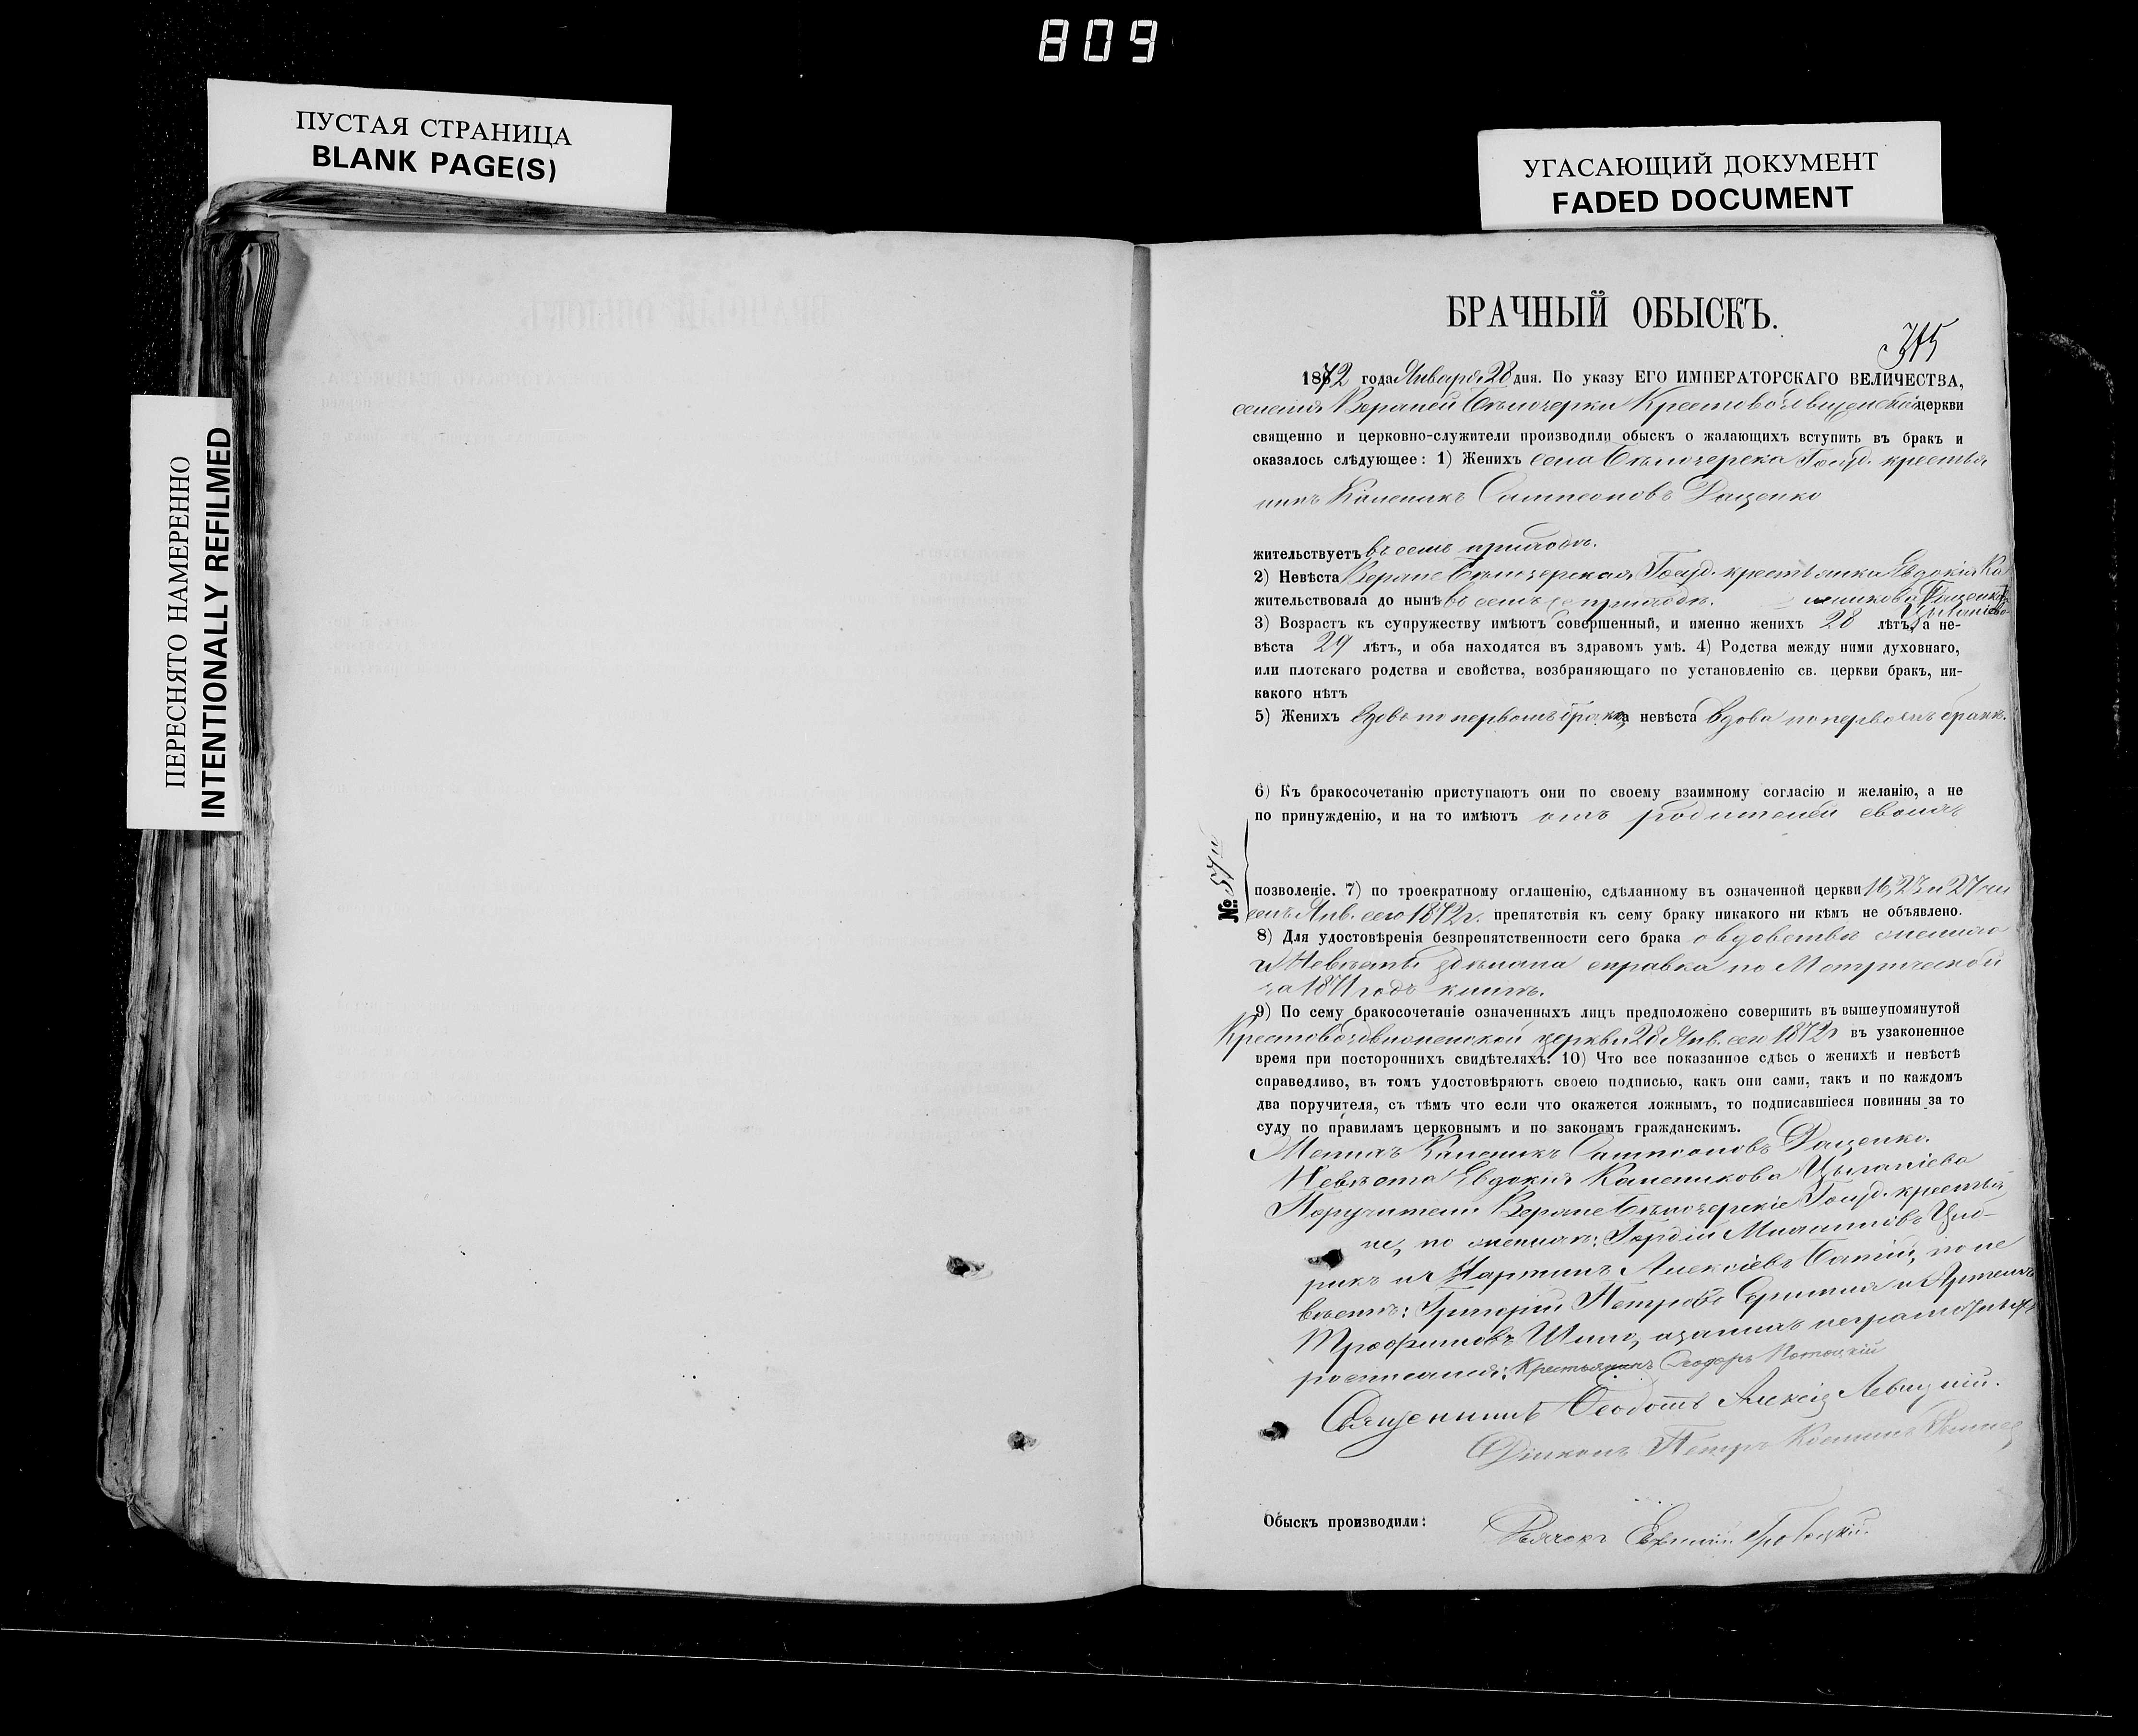 809
ПУСТАЯ СТРАНИЦА
BLANK PAGE(S)
УГАСАЮЩИЙ ДОКУМЕНТ
FADED DOCUMENT
ПЕРЕСНЯТО НАМЕРЕННО
INTENTIONALLY REFILMED
БРАЧНЫЙ ОБЫСКЪ.
315
1872 года Января 28 дня. По указу ЕГО ИМПЕРАТОРСКАГО ВЕЛИЧЕСТВА,
церкви
священно и церковно-служители производили обыскъ о жалающихъ вступить въ бракъ и
оказалось слѣдующее: 1) Женихъ села Бѣлозерска Госуд. крестья
нинъ Каленикъ Сампсоновъ Даценко
жительствуетъ въ семъ приходѣ.
2) Невѣста Верхне Бѣлозерская Госуд. крестьянка Евдокія Ка
жительствовала до нынѣ въ семъ приходѣ. леникова
3) Возрастъ къ супружеству имѣютъ совершенный, и именно женихъ 28 лѣтъ, а не-
вѣста 29 лѣтъ, и оба находятся въ здравомъ умѣ. 4) Родства между ними духовнаго,
или плотскаго родства и свойства, возбраняющаго по установленію св. церкви бракъ, ни-
какого нѣтъ
5) Женихъ вдовъ по первомъ бракѣ, невѣста вдова по первомъ бракѣ.
6) Къ бракосочетанію приступаютъ они по своему взаимному согласію и желанію, а не
по принужденію, и на то имѣютъ отъ родителей своихъ
№ 57й
позволеніе. 7) по троекратному оглашенію, сдѣланному въ означенной церкви 16, 23 и 27 чи
селъ Янв. сего 1872 г. препятствія къ сему браку никакого ни кѣмъ не объявлено.
8) Для удостовѣренія безпрепятственности сего брака о вдовствѣ жениха
и Невѣсты сдѣлана справка по Метрической
за 1871 годъ книгѣ.
9) По сему бракосочетаніе означенныхъ лицъ предположено совершить въ вышеупомянутой
Крестовоздвиженской церкви 28 Янв. сего 1872 г. въ узаконенное
время при постороннихъ свидѣтеляхъ. 10) Что все показанное сдѣсь о женихѣ и невѣстѣ
справедливо, въ томъ удостовѣряютъ своею подписью, какъ они сами, такъ и по каждомъ
два поручителя, съ тѣмъ что если что окажется ложнымъ, то подписавшіеся повинны за то
суду по правиламъ церковнымъ и по законамъ гражданскимъ.
Женихъ Каленикъ Сампсоновъ Даценко.
Невѣста Евдокія Каленикова Цыганіева
Поручители Верхне Бѣлозерскіе Госуд. крестья
не, по женихѣ: Гордій
рикъ и Мартинъ Алексіевъ по не
вѣстѣ: Григорій Петровъ и Артемъ
Трофимовъ Шило, а за нихъ неграмотныхъ
росписался: Крестьянинъ Феодоръ
Священникъ Феодотъ Алексіевъ Левицкій.
Діаконъ Петръ
Обыскъ производили:
Дьячокъ Евфимій